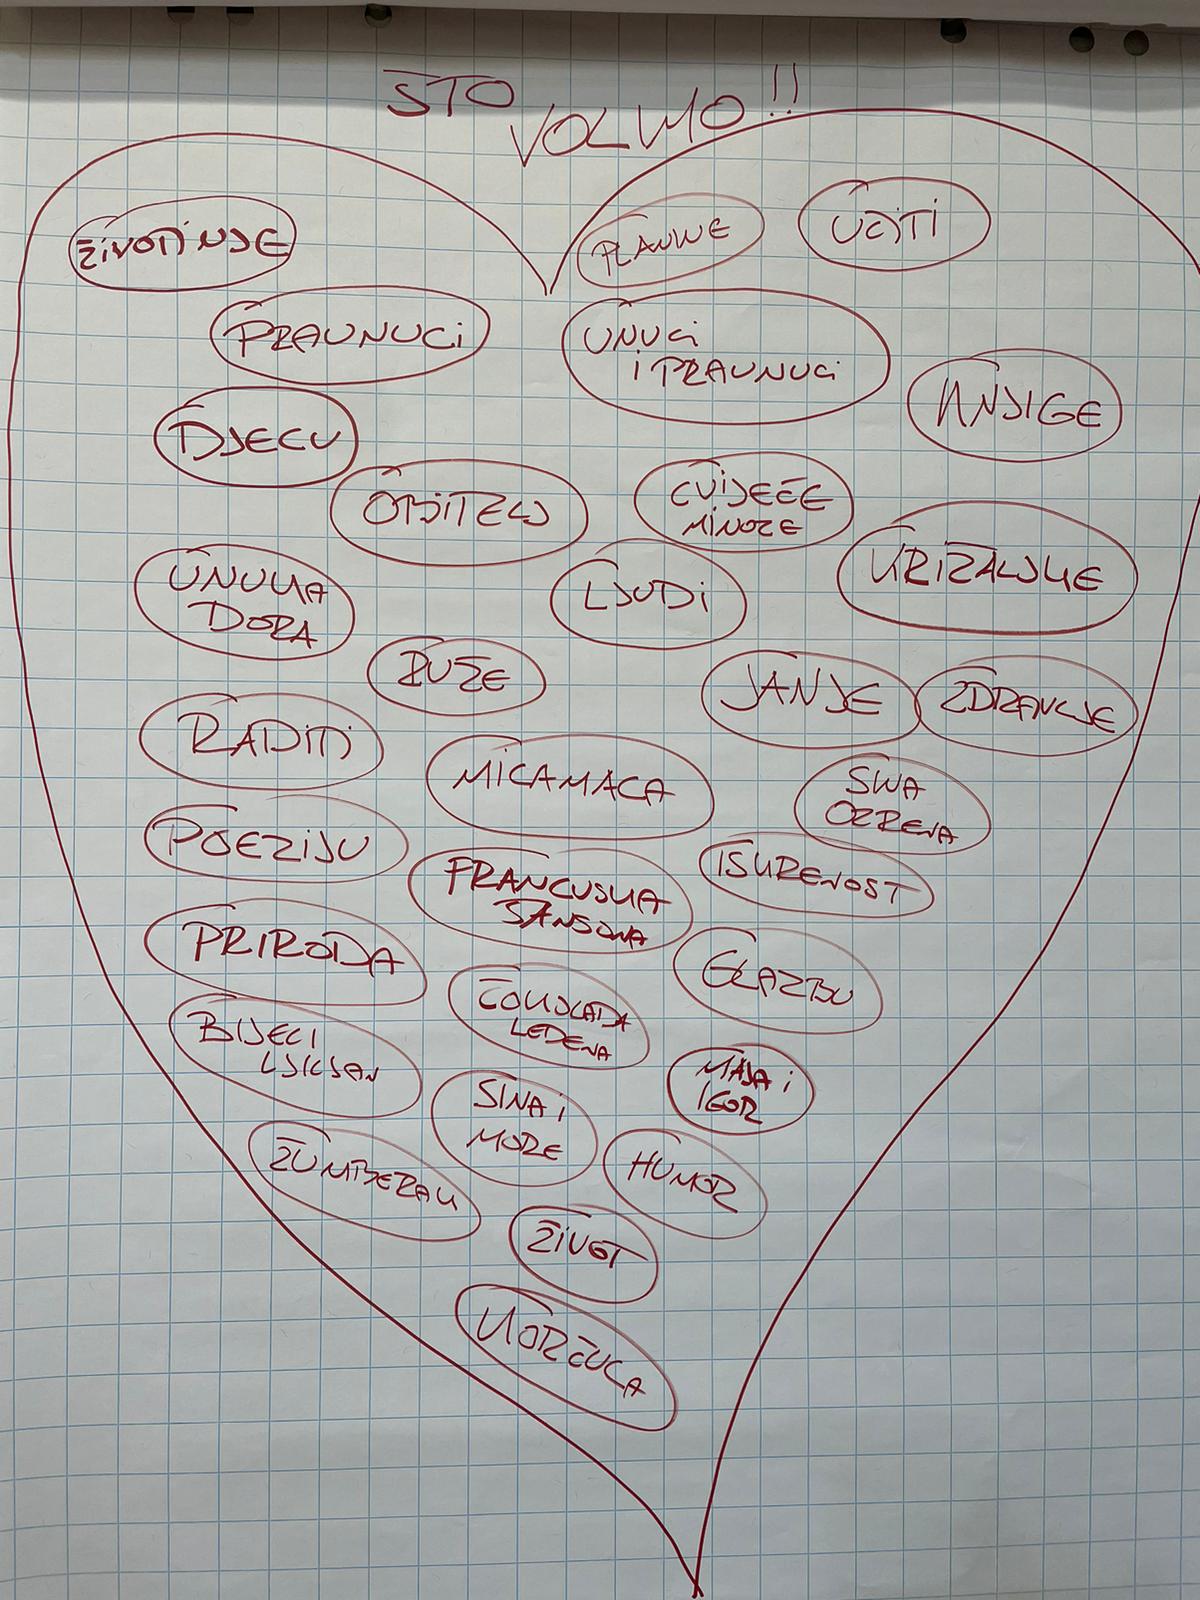 ŠTO
VOLIMO!!
ŽIVOTINJE
PLANINE
UČITI
PRAUNUCI
UNUCI
I PRAUNUCI
KNJIGE
DJECU
OBITELJ
CVIJEĆE
MIMOZE
KRIŽALJKE
UNUKA
DORA
LJUDI
RUŽE
JANJE
ZDRAVLJE
RADITI
MICAMACA
SINA
OZRENA
POEZIJU
ISKRENOST
FRANCUSKA
ŠANSONA
PRIRODA
GLAZBU
ČOKOLADA
LEDENA
BIJELI
LJILJAN
MAJA I
IGOR
SINA I
MORE
HUMOR
ŽUMBERAK
ŽIVOT
KORČULA